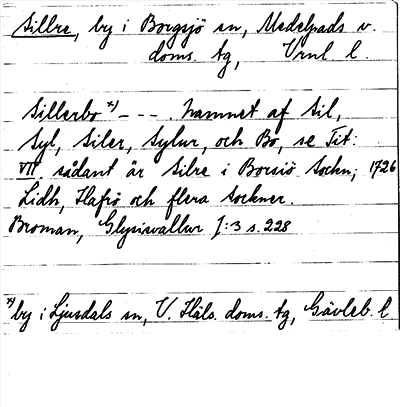 Sillre, by i Borgsjö sn, Medelpads v.
doms. tg, Vrnl l.
Sillerbo *) - - - . hamnet af Sil,
Syl, Siler, Sylur, och Bo, se Tit:
VII. sådant är Silre i Borsiö Sockn; 1726
Lidh, Hafrö och flera Sockner.
Broman, Glysisvallur I:3 s. 228
*) by i Ljusdals sn, V. Häls. doms. tg, Gävleb. l.